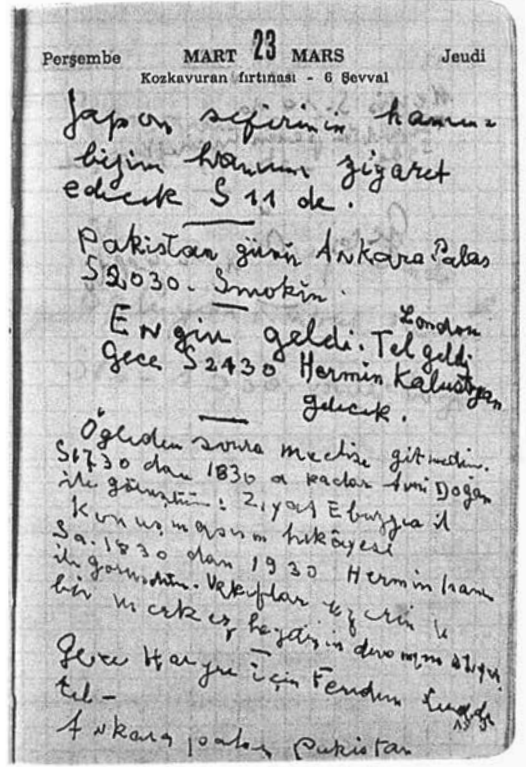 Perşembe MART 23 MARS Jeudi
Kozkavuran fırtınası - 6 Şevval
Japon sefirinin hanımı
bizim hanımı ziyaret
edicek S 11 de.
Pakistan günü Ankara Palas
S 2030. Smokin.
Engin geldi. London
Tel geldi
Gece S 2430 Hermin Kalustyan
gelicek.
Öğleden sonra meclise gitmedim.
S 1730 dan 1830 a kadar Avni Doğan
ile görüştüm: Ziyat Ebuzziya il
Konuşmasını hikâyesi
Sa. 1830 dan 1930 Hermin hanım
ile görüşdüm. Vakıflar üzerinde
bir merkez heydinin
Gece için Feridun
tel -
Ankara palas Pakistan